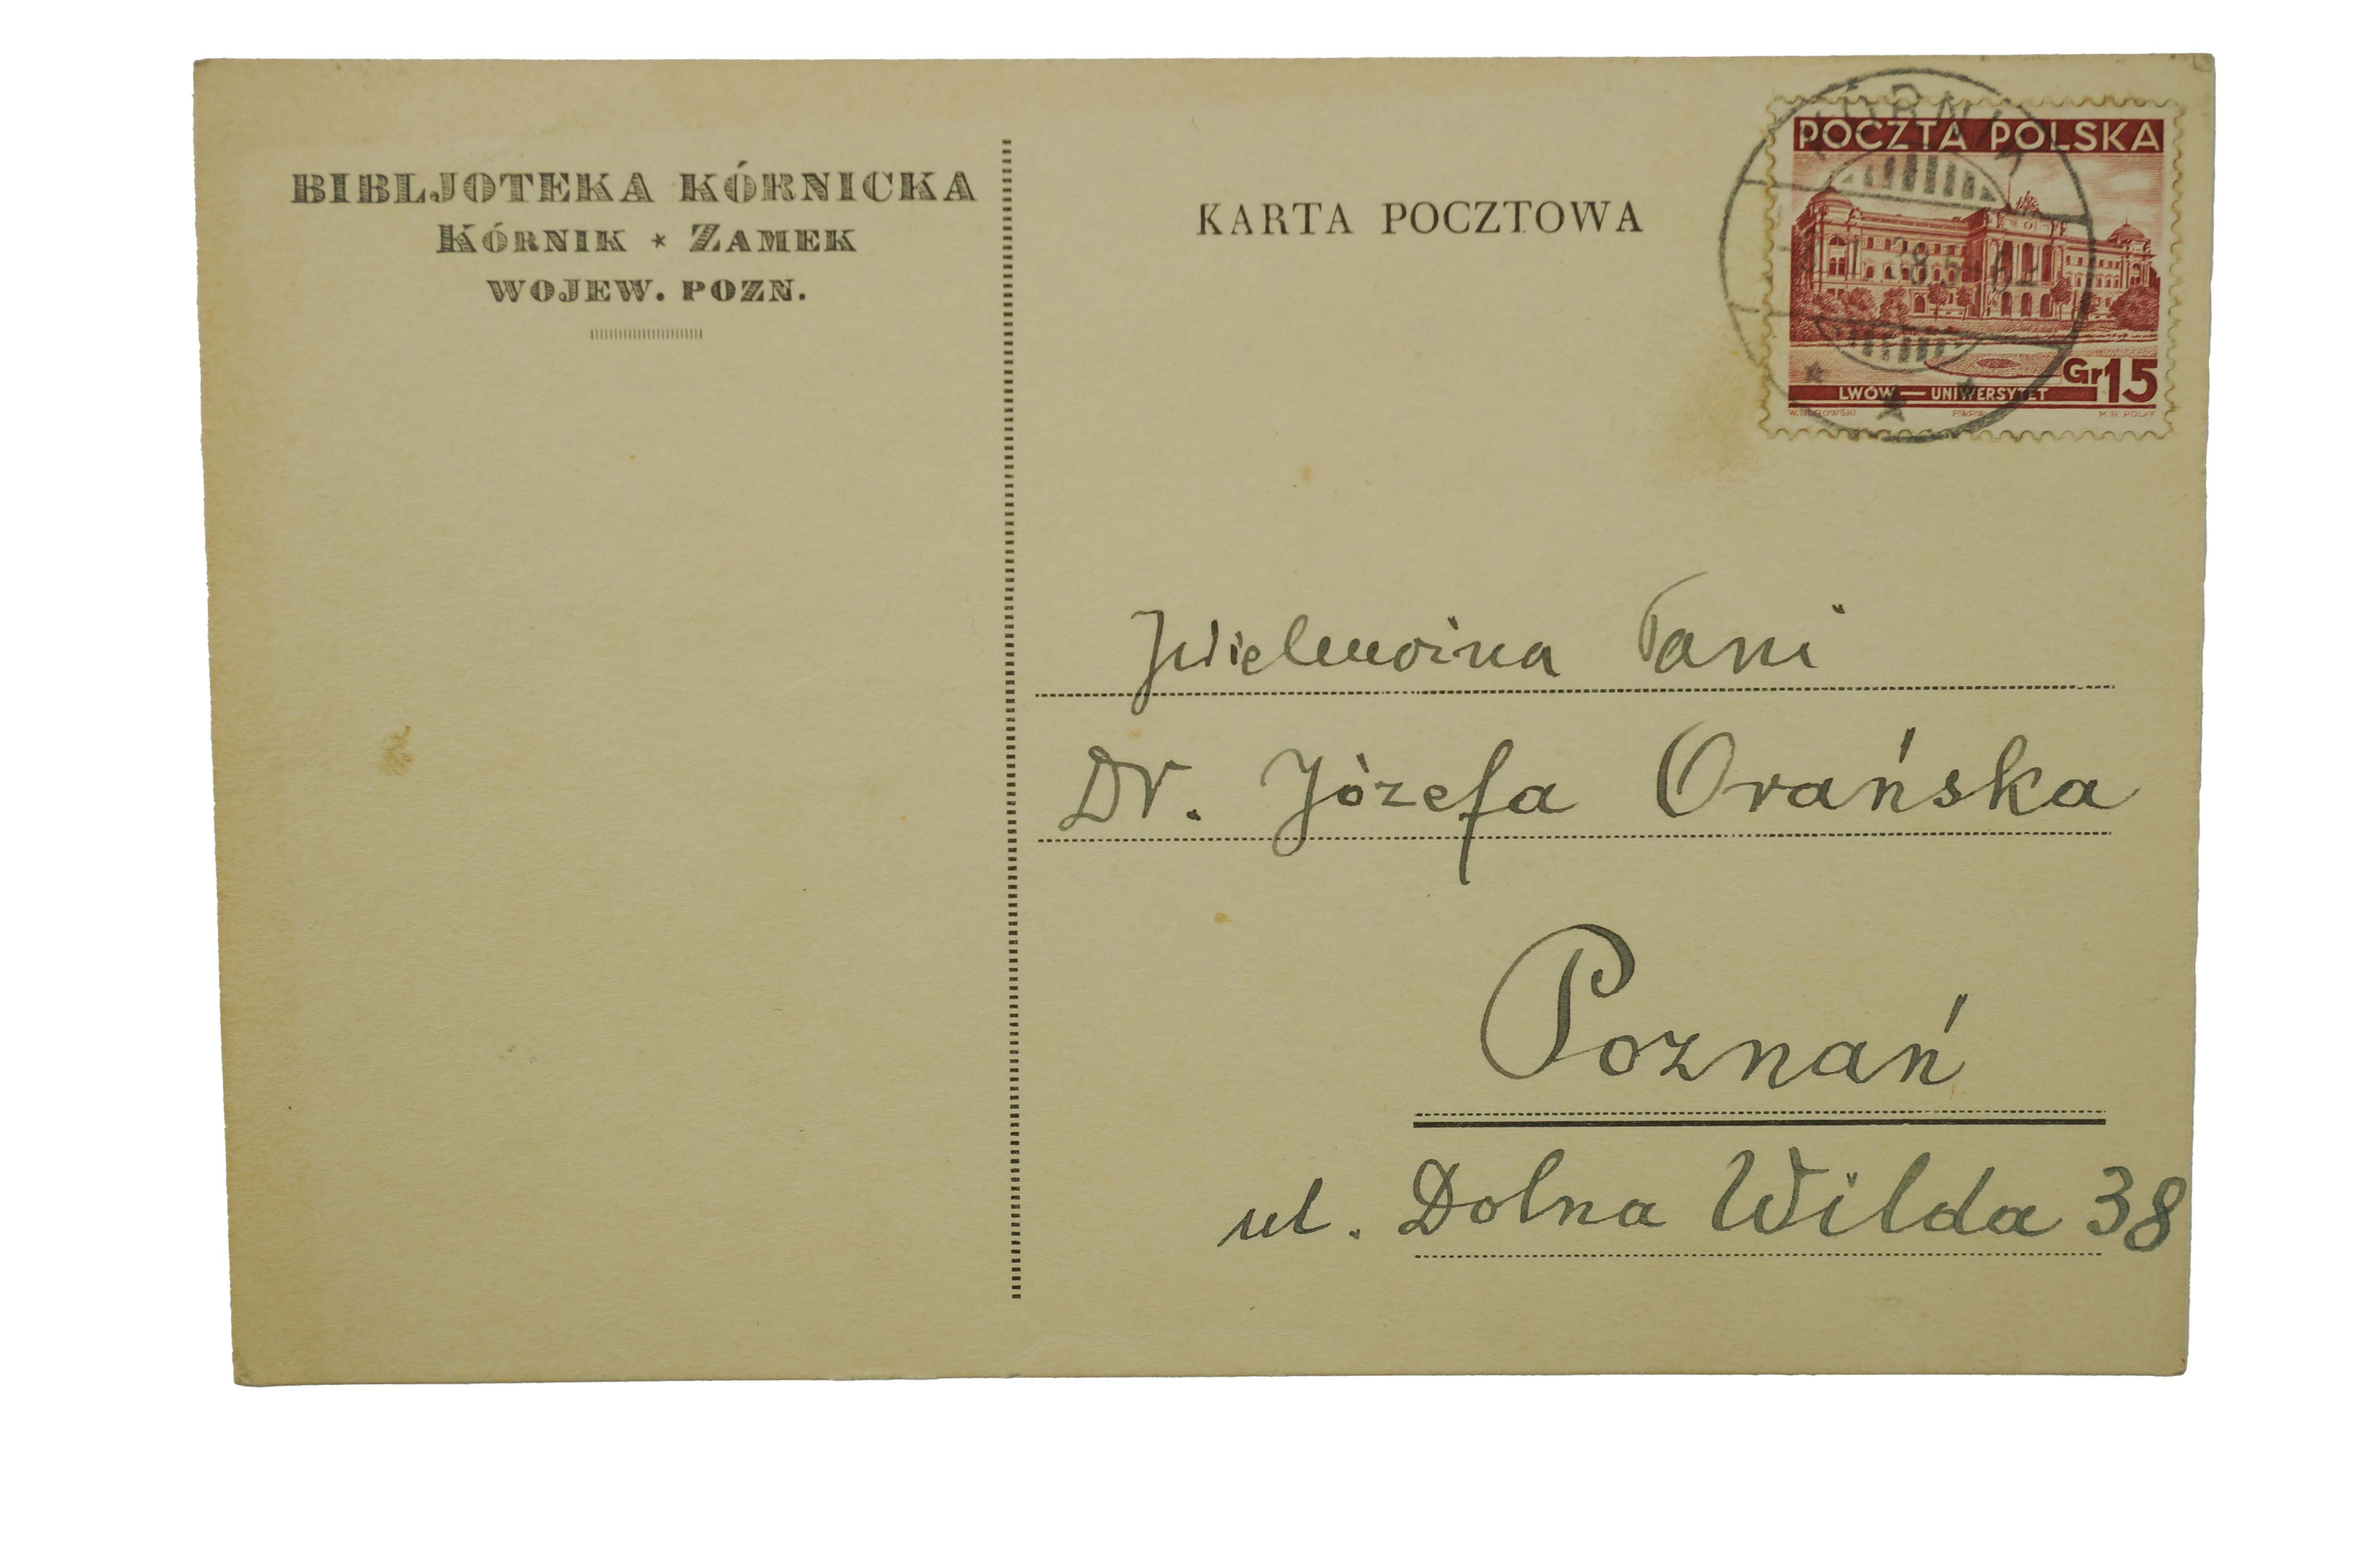 BIBLJOTEKA KÓRNICKA
KÓRNIK * ZAMEK
WOJEW. POZN.
KARTA POCZTOWA
POCZTA POLSKA
Gr 15
LWÓW — UNIWERSYTET
W. BOROWSKI
KÓRNIK
JWielmożna Pani
Dr. Józefa Orańska
Poznań
ul. Dolna Wilda 38